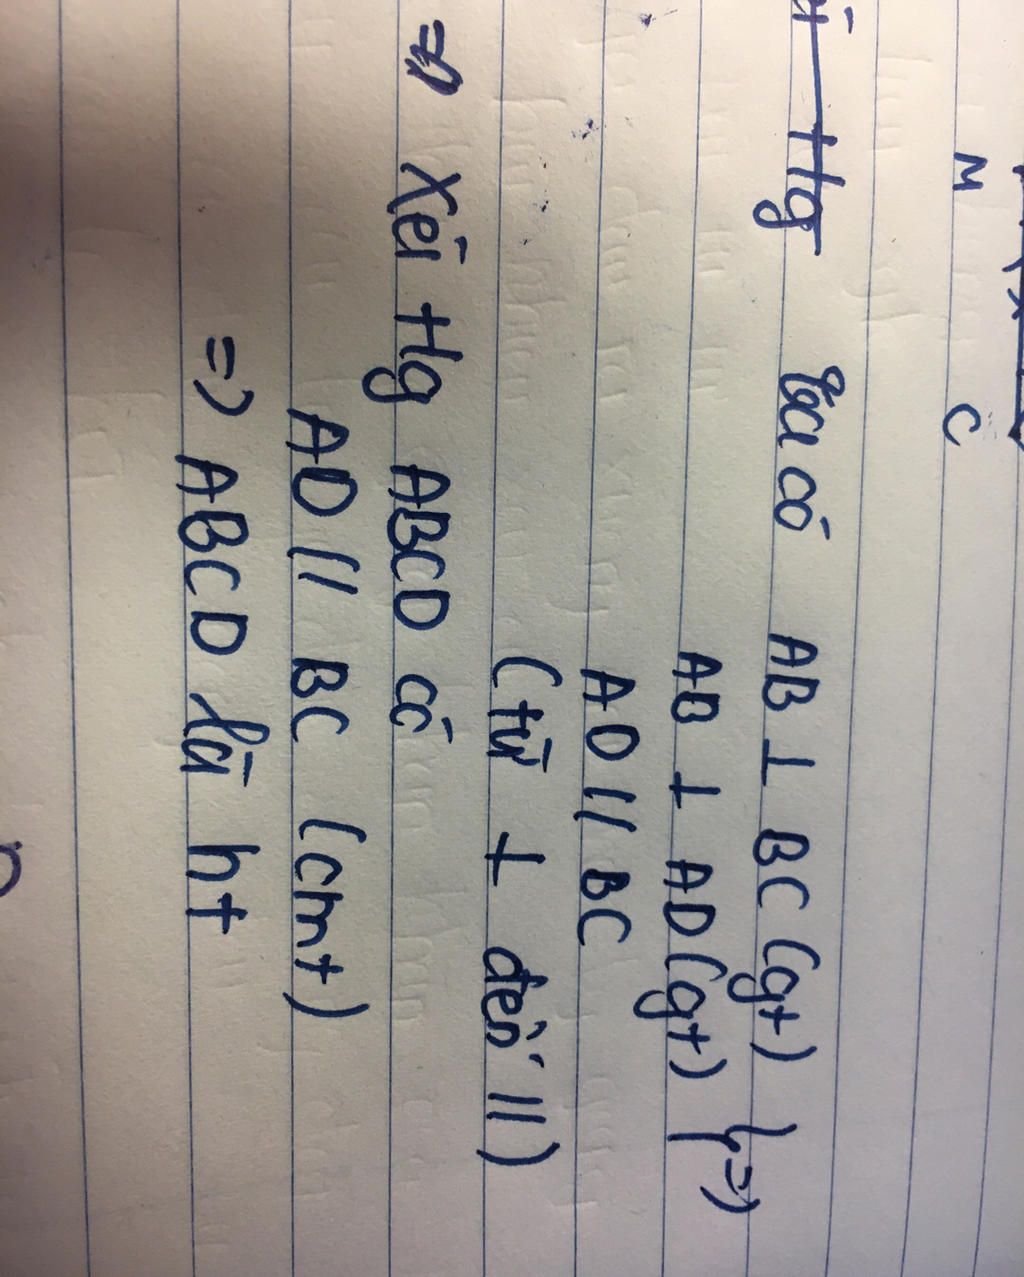 M C
Hg Ta có AB ⊥ BC (gt) } =>
AB ⊥ AD (gt)
AD // BC
(từ ⊥ đến //)
=> Xét Hg ABCD có
AD // BC (cmt)
=> ABCD là ht